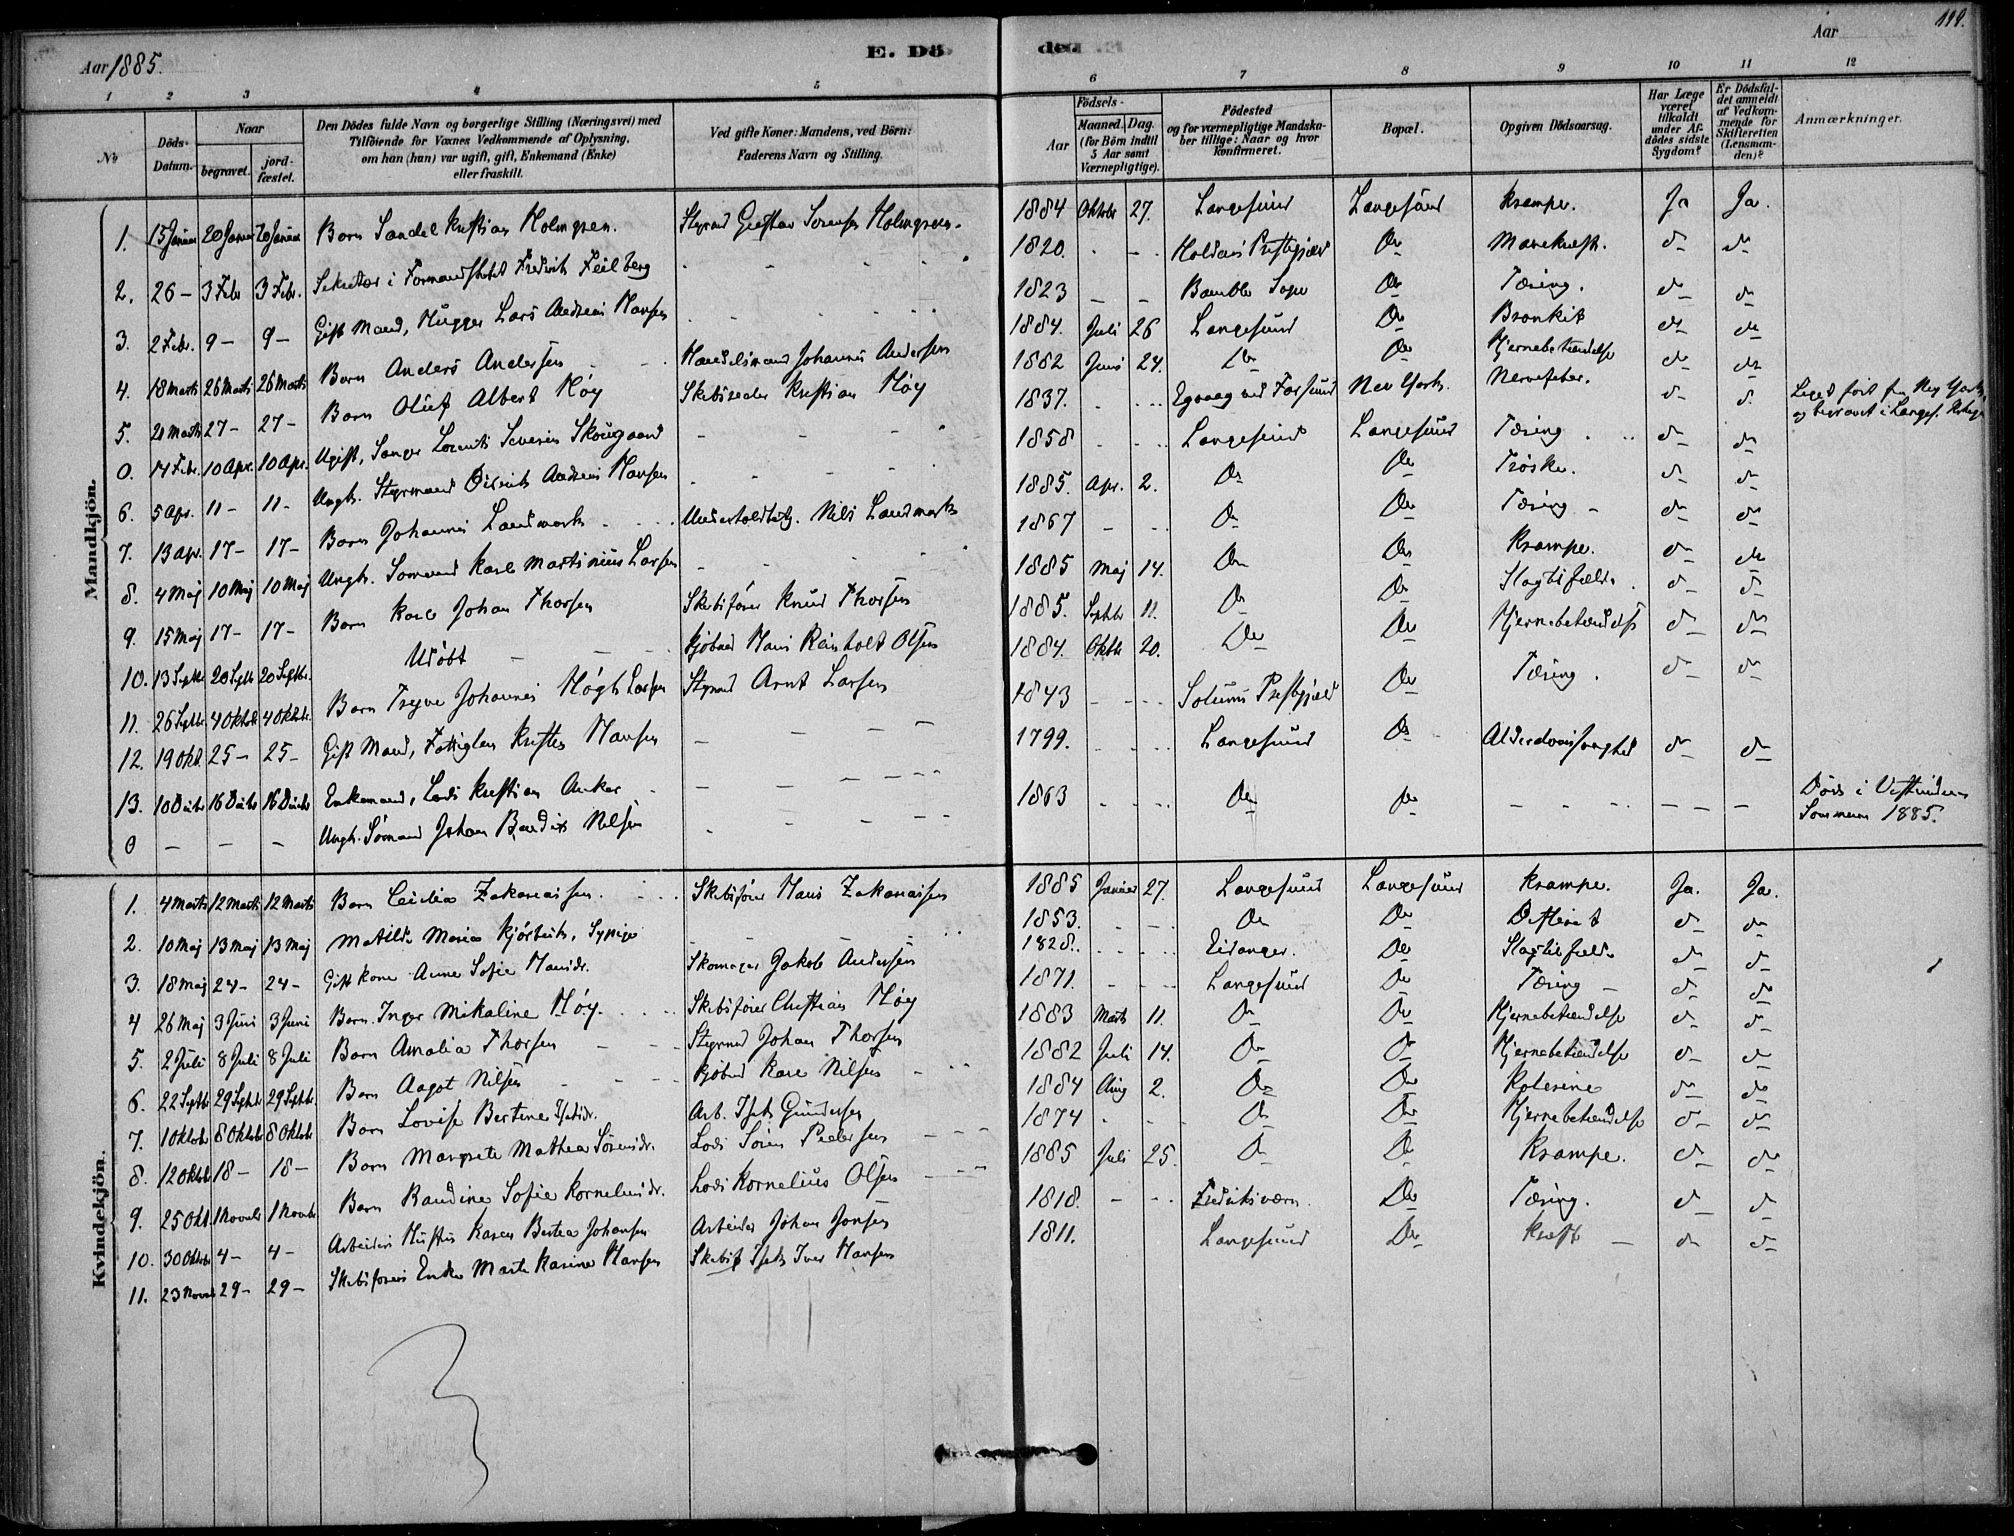 119.
Aar 1885. E. Dö- deа Aar
1 2 3 4 5 6 7 8 9 10 11 12
No
Döds-Datum.
Naar
begravet. jord-fæstet.
Den Dödes fulde Navn og borgerlige Stilling (Næringsvei) med
Tilföiende for Voxnes Vedkommende af Oplysning,
om han (hun) var ugift, gift, Enkemand (Enke)
eller fraskilt.
Ved gifte Koner: Mandens, ved Börn:
Faderens Navn og Stilling.
Födsels-
Aar Maaned. Dag.
(for Börn indtil
5 Aar samt
Værnepligtige).
Födested
og for værnepligtige Mandska-
ber tillige: Naar og hvor
Konfirmeret.
Bopæl.
Opgiven Dödsaarsag.
Har Læge
været
tilkaldt
under Af-
dödes sidste
Sygdom?
Er Dödsfal-
det anmeldt
af Vedkom-
mende for
Skifteretten
(Lensman-
den)?
Anmærkninger.
Mandkjön.
1. 15 Januar 20 Januar 20 Januar Barn Sandel Kristian Holmgren. Styrmd Gustav Holmgren. 1884 Oktobr 27. Langesund Langesund Krampe. Ja Ja.
2. 26 - 3 Febr 3 Febr. Sekretær i Formandskabet Fredrik Feilberg 1820. Holdens Prestegjæld Do Mavekræft. do do
3. 2 Febr. 9 - 9 - Gift Mand, Hugger Lars Andreas Hansen 1823 Bamble Sogn Do Tæring. do do
4. 18 Marts 26 Marts 26 Marts Barn Anders Andersen Handelsmand Johannes Andersen 1884. Juli 26 Langesund Do Bronkit do do
5. 21 Marts 27 - 27 - Barn Oluf Albert Höy Skibsreder Kristian Höy 1882 Juni 24. Do Do Hjernebetændelse do do
0. 14 Febr. 10 Apr. 10 Apr. Ugift, Sanger Lorents Severin Skougaard 1837. Egvaag ved Farsund New York. Nervefeber. do do Liget fört fra New York og begravet i Langes. Kirkeg.
6. 5 Apr. 11 - 11 - Ungk. Styrmand Didrik Andreas Hansen 1858 Langesund Langesund Tæring do do
7. 13 Apr. 17 - 17 - Barn Johannes Landmark Nils Landmark 1885. Apr. 2. Do Do Tröske. do do
8. 4 Maj 10 Maj 10 Maj Ungk. Sömand Karl Martinius Larsen 1867 Do Do Tæring do do
9. 15 Maj 17 - 17 - Barn Karl Johan Thorsen Skibsförer Knud Thorsen 1885 Maj 14. Do Do Krampe. do do
10. 13 Septbr 20 Septbr 20 Septbr. Udöbt Kjöbmd Hans Reinholt Olsen 1885. Septbr 11. Do Do Slagtilfælde. do do
11. 26 Septbr 4 Oktob 4 Oktob. Barn Trygve Johannes Högh Larsen Styrmd Arnt Larsen 1884. Oktbr 20. Do Do Hjernebetændelse do do
12. 19 Okt. 25 - 25 - Gift Mand, Fattiglem Kristen Hansen 1843 Solums Prestegjæld Do Tæring. do do
13. 10 Decbr 16 Decbr 16 Decbr Enkemand, Lods Kristian Anker 1799. Langesund Do Alderdomssvaghed do do
0 - - - Ungk. Sömand Johan Bendix Nilsen 1863 Do Do Död i Vestindien Sommeren 1885.
Kvindekjön.
1. 4 Marts 12 Marts 12 Marts Barn Cecilia Zakariassen. Skibsförer Hans Zakariassen 1885 Januar 27. Langesund Langesund Krampe. Ja. Ja.
2. 10 Maj 13 Maj 13 Maj Matilde Maria Sypige 1853. Do Do do do
3. 18 Maj 24 - 24 - Gift Kone Anne Sofie Hansdr. Skomager Jakob Andersen 1828. Eidanger. Do Slagtilfælde do do
4 26 Maj 3 Juni 3 Juni Barn. Inger Mikaline Höy. Skibsförer Christian Höy 1871. Langesund Do Tæring do do
5. 2 Juli 8 Juli 8 Juli Barn Amalia Thorsen Styrmd Johan Thorsen 1883 Marts 11. Do Do Hjernebetændelse do do
6. 22 Septbr 29 Septbr. 29 Septbr. Barn Aagot Nilsen Kjöbmd Karl Nilsen 1882 Juli 14. Do Do Hjernebetændelse do do
7. 1 Oktobr 8 Oktobr 8 Oktobr Barn Lovise Bertine Isaksdr. Arb. Isak Gundersen 1884 Aug 2. Do Do Kolerine do do
8. 12 Oktob 18 - 18 - Barn Margrete Mathea Sörensdr. Lods Sören Pedersen 1874 Do Do Hjernebetændelse do do
9. 25 Okt. 1 Novbr 1 Novbr. Barn Randine Sofie Kornelinsdr. Lods Kornelius Olsen 1885 Juli 25. Do Do Krampe. do do
10. 30 Oktob 4 - 4 - Arbeiders Hustru Karen Bertea Johansen Arbeider Johan Jonsen 1818. Fredriksværn. Do Tæring. do do
11. 23 Novbr 29 - 29 - Skibsförers Enke Marte Karine Hansen Skibsf Isak Iver Hansen 1811. Langesund Do Kræft do do